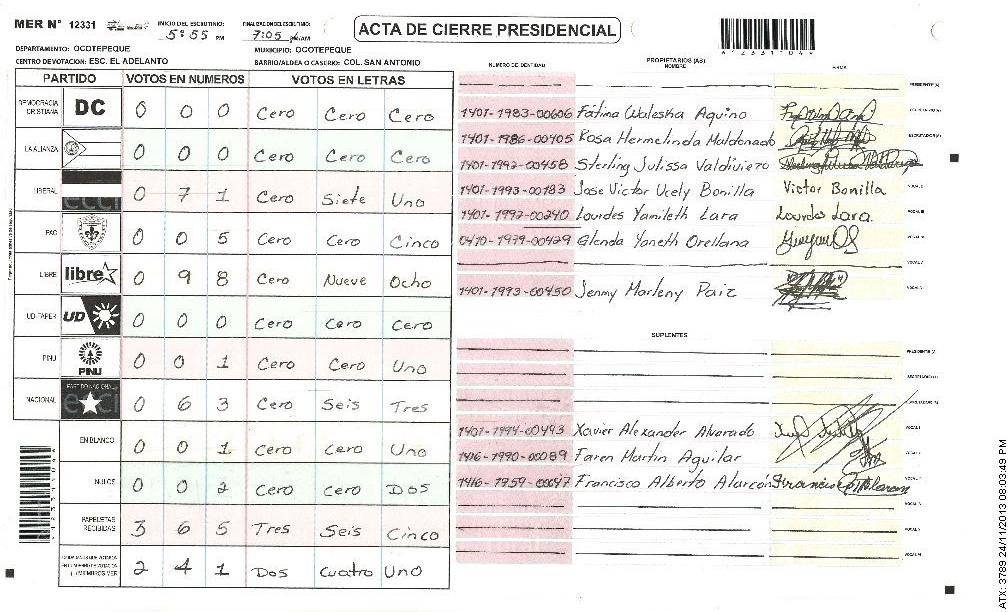 MER N° 12331
INICIO DEL ESCRUTINIO: 5:55 PM
FINALIZACION DEL ESCRUTINIO: 7:05 AM
ACTA DE CIERRE PRESIDENCIAL
DEPARTAMENTO: OCOTEPEQUE
MUNICIPIO: OCOTEPEQUE
CENTRO DE VOTACION: ESC. EL ADELANTO
BARRIO/ALDEA O CASERIO: COL. SAN ANTONIO
PARTIDO VOTOS EN NUMEROS VOTOS EN LETRAS
DEMOCRACIA CRISTIANA DC 0 0 0 Cero Cero Cero
LA ALIANZA 0 0 0 Cero Cero Cero
LIBERAL 0 7 1 Cero Siete Uno
PAC 0 0 5 Cero Cero Cinco
LIBRE libre 0 9 8 Cero Nueve Ocho
UD-FAPER UD 0 0 0 Cero Cero Cero
PINU PINU 0 0 1 Cero Cero Uno
NACIONAL PARTIDO NACIONAL 0 6 3 Cero Seis Tres
EN BLANCO 0 0 1 Cero Cero Uno
NULOS 0 0 2 Cero Cero Dos
PAPELETAS RECIBIDAS 3 6 5 Tres Seis Cinco
2 4 1 Dos Cuatro Uno
NUMERO DE IDENTIDAD PROPIETARIOS (AS) NOMBRE FIRMA
1401-1983-00606 Fátima Waleska Aquino
1401-1986-00405 Rosa Hermelinda Maldonado
1401-1992-00458 Sterling Julissa Valdiviezo
1401-1993-00183 Jose Victor Ucely Bonilla Victor Bonilla
1401-1992-00240 Lourdes Yamileth Lara Lourdes Lara.
0410-1979-00429 Glenda Yaneth Orellana
1401-1993-00450 Jenny Marleny Paiz
SUPLENTES
1401-1994-00493 Xavier Alexander Alvarado
1416-1990-00089 Faren Martin Aguilar
1416-1959-00047 Francisco Alberto Alarcón
ATX: 3789 24/11/2013 08:03:49 PM